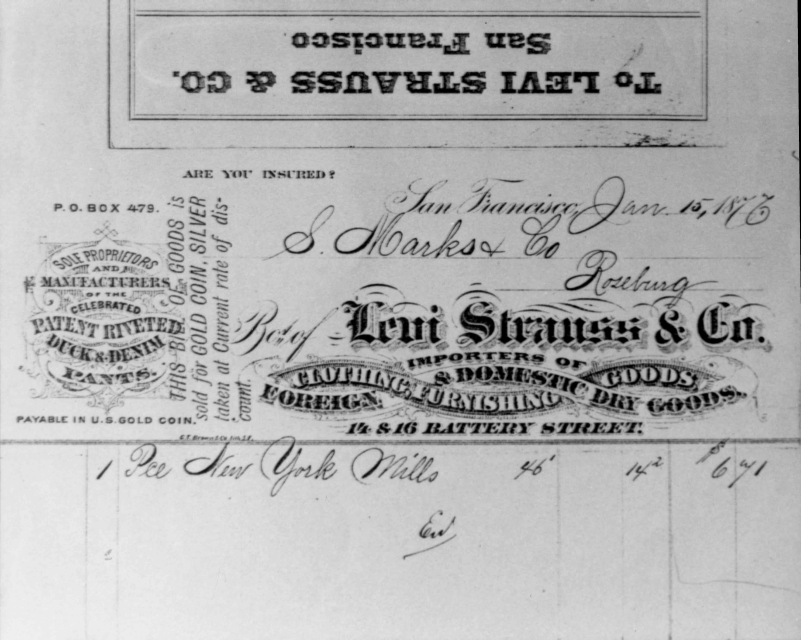 To LEVI STRAUSS & CO.
San Francisco
ARE YOU INSURED?
P.O. BOX 479.
San Francisco, Jan. 15, 1876
S. Marks & Co
Roseburg
Bot of Levi Strauss & Co.
IMPORTERS OF
CLOTHING, & DOMESTIC GOODS,
FOREIGN, FURNISHING DRY GOODS.
14 & 16 BATTERY STREET.
SOLE PROPRIETORS
AND
MANUFACTURERS
OF THE
CELEBRATED
PATENT RIVETED
DUCK & DENIM
PANTS.
PAYABLE IN U.S. GOLD COIN.
THIS BILL OF GOODS is
sold for GOLD COIN. SILVER
taken at Current rate of dis-
count.
1 Pce New York Mills 46' 14² $ 6 71